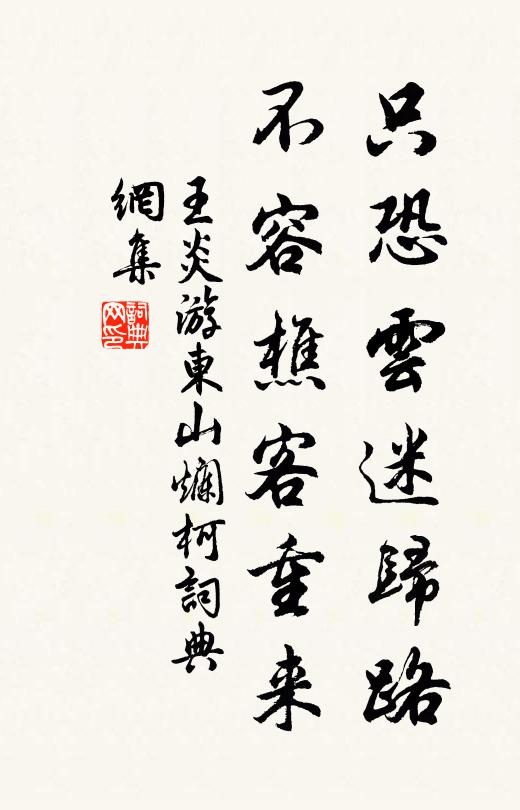 只恐雲迷歸路
不容樵客重来
王炎游東山爛柯詞典
網集
詞典
网印